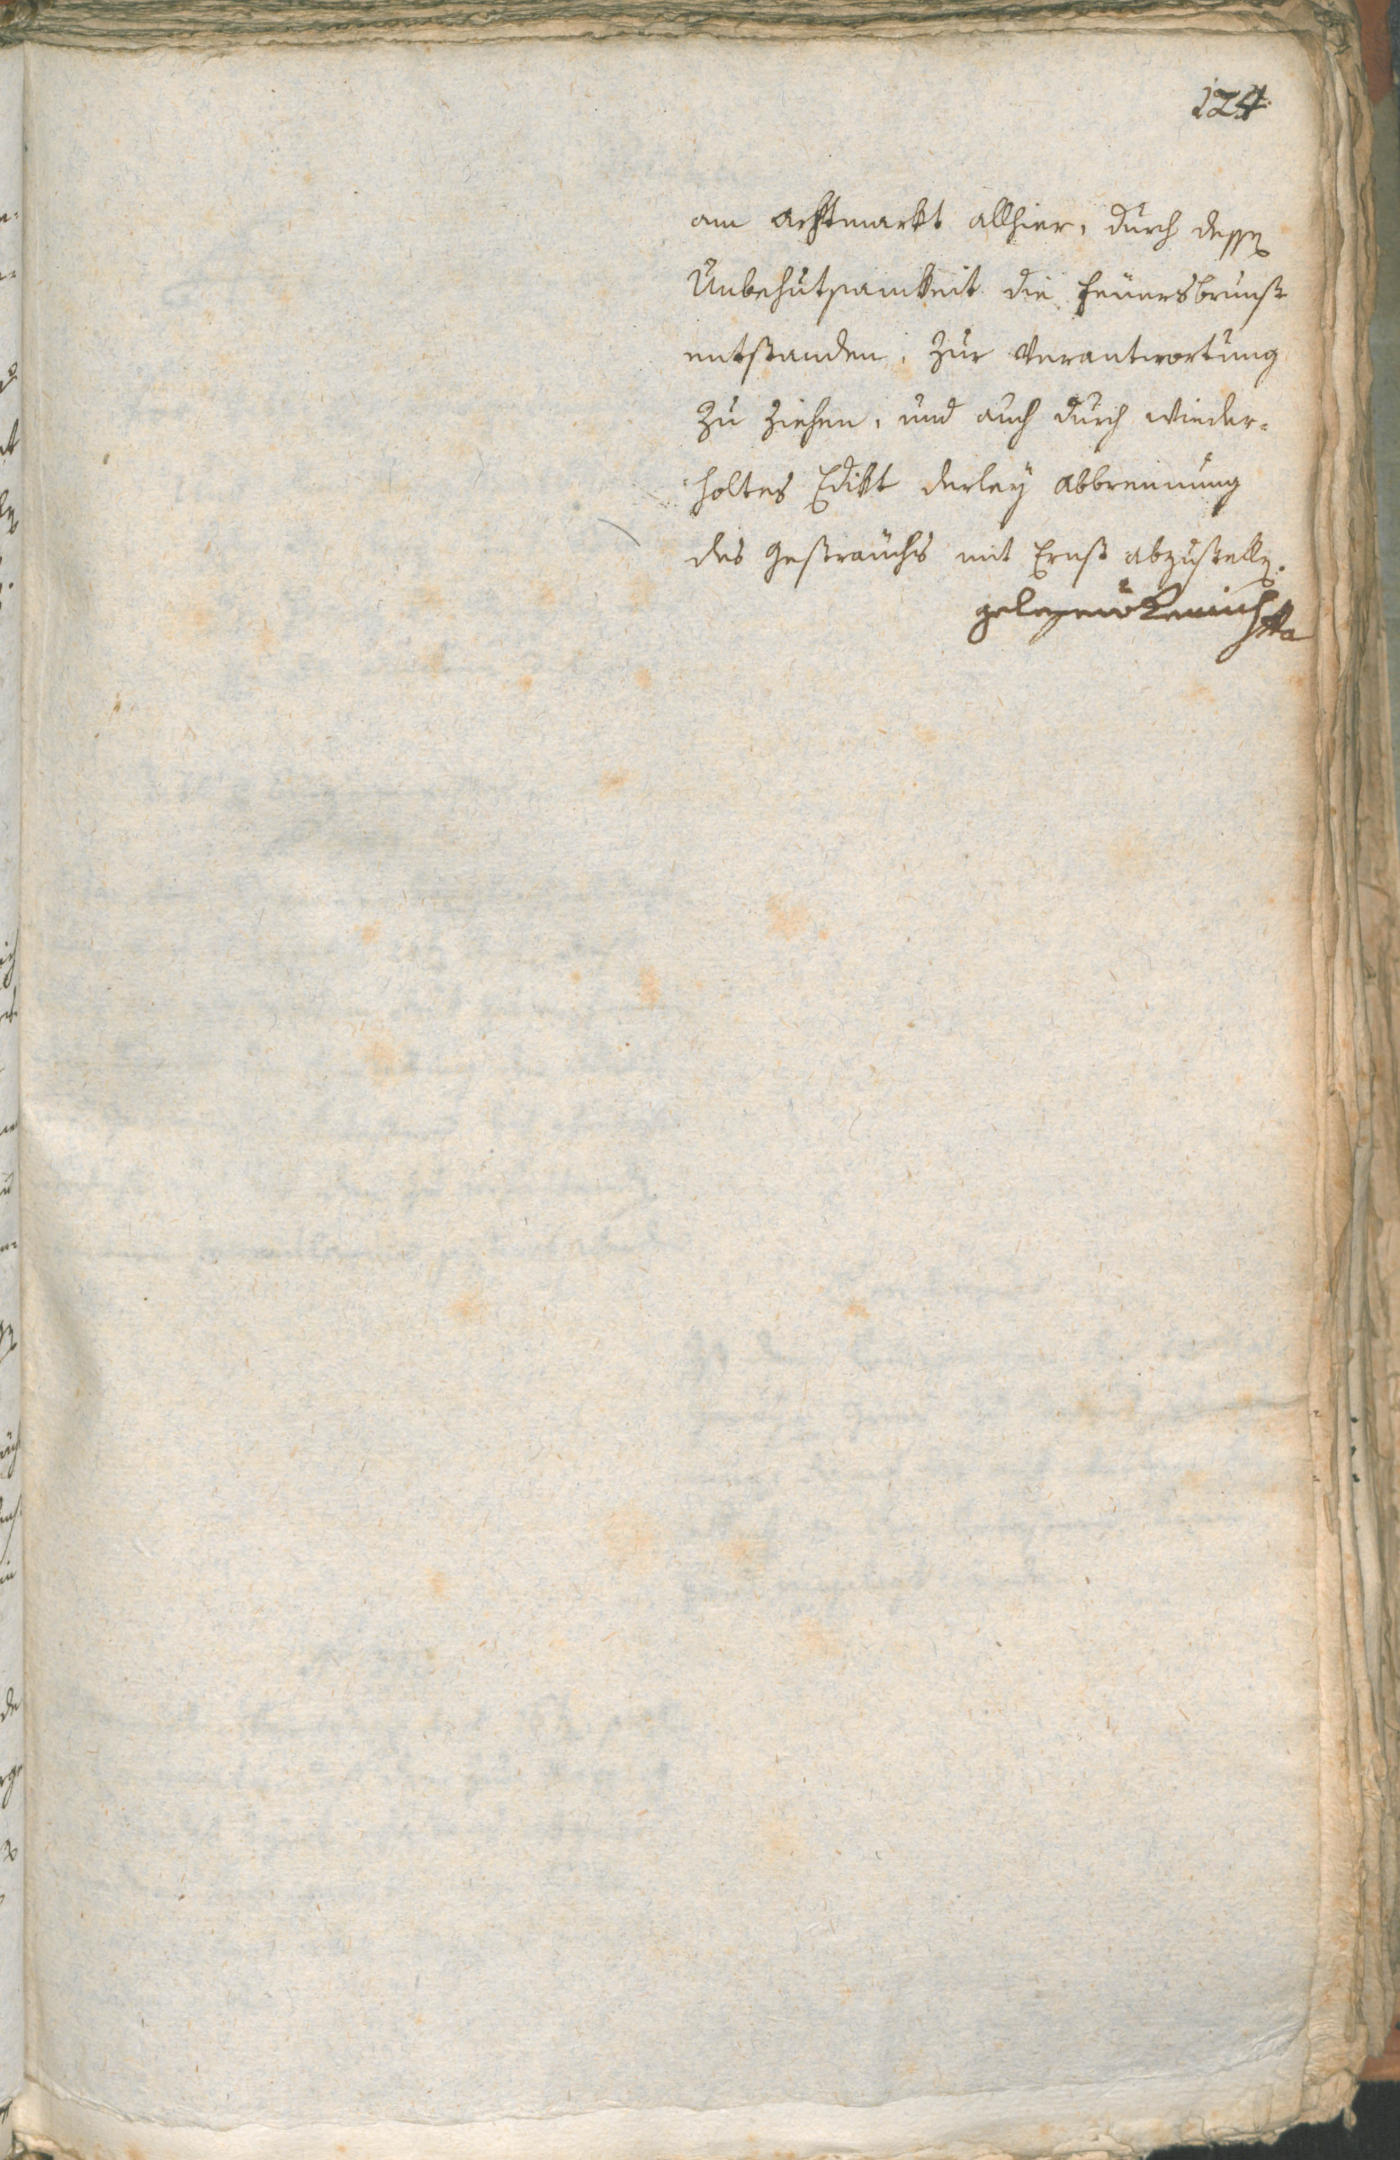 124
am Obstmarkt allhier, durch dessen
Unbehutsamkeit die Feuersbrunst
entstanden, zur Verantwortung
zu ziehen, und auch durch wieder-
holtes Edikt derley Abbrennung
des Gesträuchs mit Ernst abzustellen.
gelesen